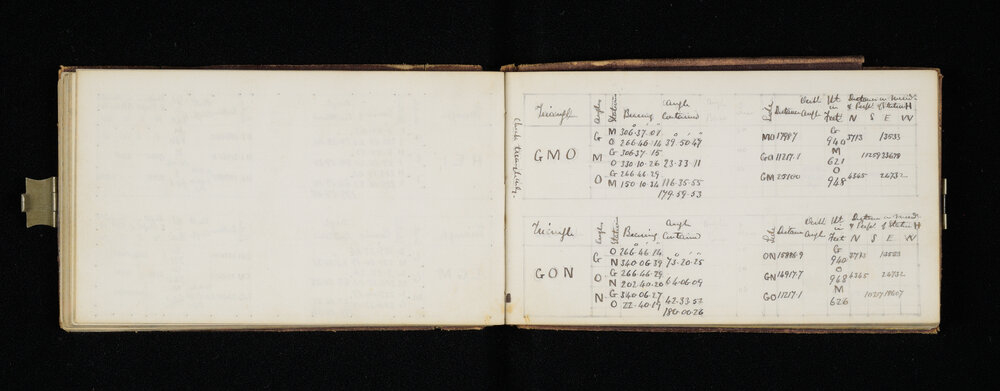 Triangle Angles Station Bearing Angle Contained Side Distance Vertl Angle Ht in Feet Distance in & Perp. of Station H
N S E W
GMO
G M 306-37-01
O 266-46-14 39-50-47
M G 306-37-15
O 330-10-26 23-33-11
O G 266-46-29
M 150-10-34 116-35-55
179-59-53
MO 17987 G 940 3713 13533
GO 11217.1 M 621
GM 25100 O 948 4345 24732
Triangle Angles Station Bearing Angle Contained Side Distance Vertl Angle Ht in Feet Distance in & Perp. of Station H
N S E W
GON
G O 266-46-14
N 340-06-39 73-20-25
O G 266-46-29
N 202-40-20 64-06-09
N G 340-06-27
O 22-40-19 42-33-52
180-00-26
ON 15886.9 G 940 3713 13533
GN 14917.7 O 948 4345 24732
GO 11217.1 M 626